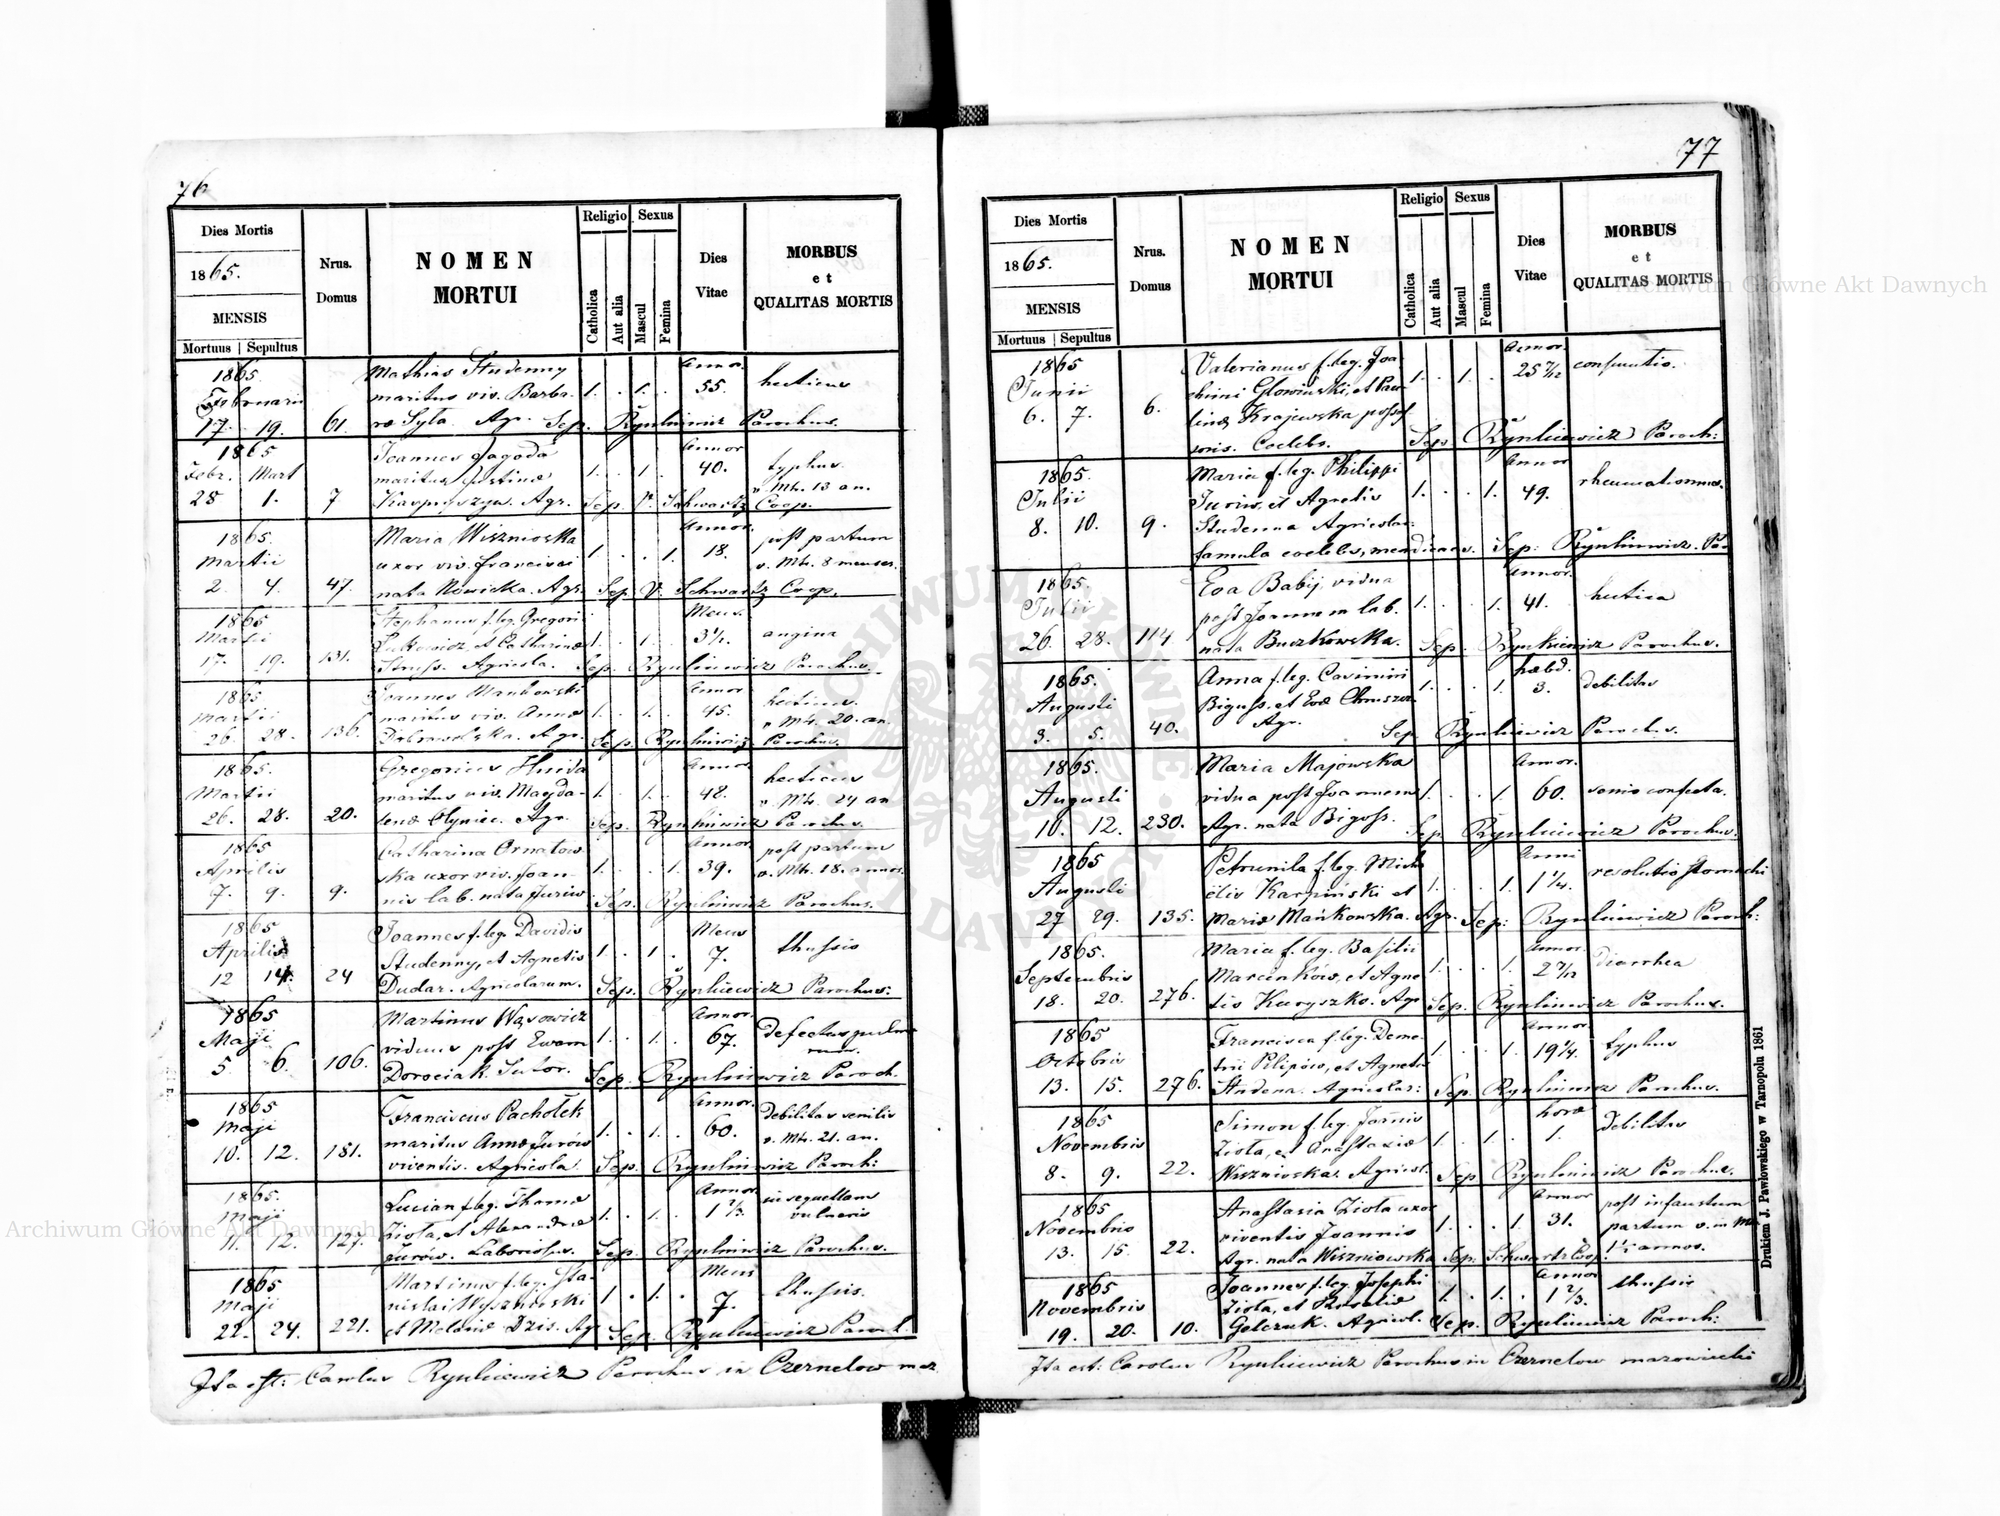 76
Dies Mortis
1865.
MENSIS
Mortuus | Sepultus
Nrus.
Domus
NOMEN
MORTUI
Religio
Catholica
Aut alia
Sexus
Mascul
Femina
Dies
Vitae
MORBUS
et
QUALITAS MORTIS
1865 Mathias Studenny Annor.
Februarii maritus viv. Barba- 1. . 1. . 55. hecticus
17. 19. 61. ræ Syta. Agr. Sep. Rynkiewicz Parochus.
1865 Joannes Jagoda Annor
Febr. Mart maritus Justinæ 1. . 1. . 40. typhus.
28 1. 7 Agr. Sep. V. Schwartz Coop. v. Mtr. 13 an.
1865. Maria Wisznioska Annor. post partum
Martii uxor viv. Francisci 1. . . 1. 18. v. Mtr. 8 menses.
2. 4. 47. nata Nowicka. Agr. Sep. V. Schwartz Coop.
1865 Stephanus f. leg. Gregorii Mens.
Martii et Catharinæ 1. . 1. . 3½. angina
17. 19. 131. Agricola. Sep. Rynkiewicz Parochus.
1865 Joannes Mankowski Annor hecticus.
Martii maritus viv. Annæ 1. . 1. . 45. v. Mtr. 20. an.
26. 28. 136. Dobrowolska. Agr. Sep. Rynkiewicz Parochus.
1865. Gregorius Annor. hecticus
Martii maritus viv. Magda- 1. . 1. . 48. v. Mtr. 24 an
26. 28. 20. lenæ Agr. Sep. Rynkiewicz Parochus.
1865 Catharina Ornatow- Annor. post partum
Aprilis ska uxor viv. Joan- 1. . . 1. 39. v. Mtr. 18. annos.
7. 9. 9. nis lab. nata Jurów Sep. Rynkiewicz Parochus.
1865 Joannes f. leg. Davidis Mens
Aprilis Studenny, et Agnetis 1. . 1. . 7. thussis
12 14. 24 Dudar. Agricolarum. Sep. Rynkiewicz Parochus.
1865 Martinus Wąsowicz Annor. defectus pulmo-
Maji viduus post Evam 1. . 1. . 67. num.
5 6. 106. Dorociak. Sutor. Sep. Rynkiewicz Paroch.
1865 Franciscus Pachołek Annor. debilitas senilis
Maji maritus Annæ Jurów 1. . 1. . 60. v. Mtr. 21. an.
10. 12. 181. viventis. Agricola. Sep. Rynkiewicz Paroch:
1865. Lucian f. leg. Thomæ Annor. in sequellam
Maji Ziola, et Alexandræ 1. . 1. . 1 2/3. vulneris
11. 12. 127. Jurów. Laboriosus. Sep. Rynkiewicz Parochus.
1865 Martinus f. leg. Sta- Mens
Maji nislai Wysznioski 1. . 1. . 7. thussis.
22. 24. 221. et Melaniæ Dzis. Agr Sep. Rynkiewicz Paroch.
Ita est: Carolus Rynkiewicz Parochus in Czernelow maz
77
Dies Mortis
1865.
MENSIS
Mortuus | Sepultus
Nrus.
Domus
NOMEN
MORTUI
Religio
Catholica
Aut alia
Sexus
Mascul
Femina
Dies
Vitae
MORBUS
et
QUALITAS MORTIS
1865 Valerianus f. leg. Joa- Annor.
Junii chimi Głowiński, et Pau- 1. . 1. . 25 7/12 consumtio.
6. 7. 6. linæ Krajewska posses-
soris. Coelebs. Sep. Rynkiewicz Paroch:
1865. Maria f. leg. Philippi Annor
Julii Jurów, et Agnetis 1. . . 1. 49. rheumatismus.
8. 10. 9. Studenna Agricolar:
famula coelebs, mendicans. Sep: Rynkiewicz. Par
1865 Eva Babij vidua Annor.
Julii post Joannem lab. 1. . . 1. 41. hectica
26. 28. 114 nata Buczkowska. Sep. Rynkiewicz Parochus.
1865. Anna f. leg. Casimiri hæbd.
Augusti Biguss. et Evæ 1. . . 1. 3. debilitas
3. 5. 40. Agr. Sep. Rynkiewicz Parochus.
1865. Maria Majowska Annor.
Augusti vidua post Joannem 1. . . 1. 60. senio confecta.
10. 12. 230. Agr. nata Bigoss. Sep. Rynkiewicz Parochus.
1865 Petrunila f. leg. Mich- Anni
Augusti ëlis Karpiński et 1. . . 1. 1¼. resolutio stomachi
27 29. 135. Mariæ Mańkowska. Agr. Sep: Rynkiewicz Paroch:
1865. Maria f. leg. Basilii Annor.
Septembris Marcinków, et Agne- 1. . . 1. 2 7/12 diarrhea
18. 20. 276. tis Kuryszko. Agr Sep. Rynkiewicz Parochus.
1865 Francisca f. leg. Deme- Annor
Octobris trii Pilipów, et Agnetis 1. . . 1. 19¼. typhus
13. 15. 276. Studena. Agricolar: Sep. Rynkiewicz Parochus.
1865 Simon f. leg. Joannis horæ
Novembris Ziola, et Anastasiæ 1. . 1. . 1. debilitas
8. 9. 22. Wiszniowska. Agricol. Sep. Rynkiewicz Parochus.
1865 Anastasia Ziola uxor Annor post infaustum
Novembris viventis Joannis 1. . . 1. 31. partum v. in Mtr
13. 15. 22. Agr. nata Wiszniowska Sep. Schwartz Coop. annos.
1865 Joannes f. leg. Josephi Annor
Novembris Ziola, et Rosaliæ 1. . 1. . 1 2/3. thussis
19. 20. 10. Golczuk. Agricol. Sep. Rynkiewicz Paroch:
Ita est: Carolus Rynkiewicz Parochus in Czernelow mazowiecki
Drukiem J. Pawłowskiego w Tarnopolu 1861
Archiwum Główne Akt Dawnych
Archiwum Główne Akt Dawnych